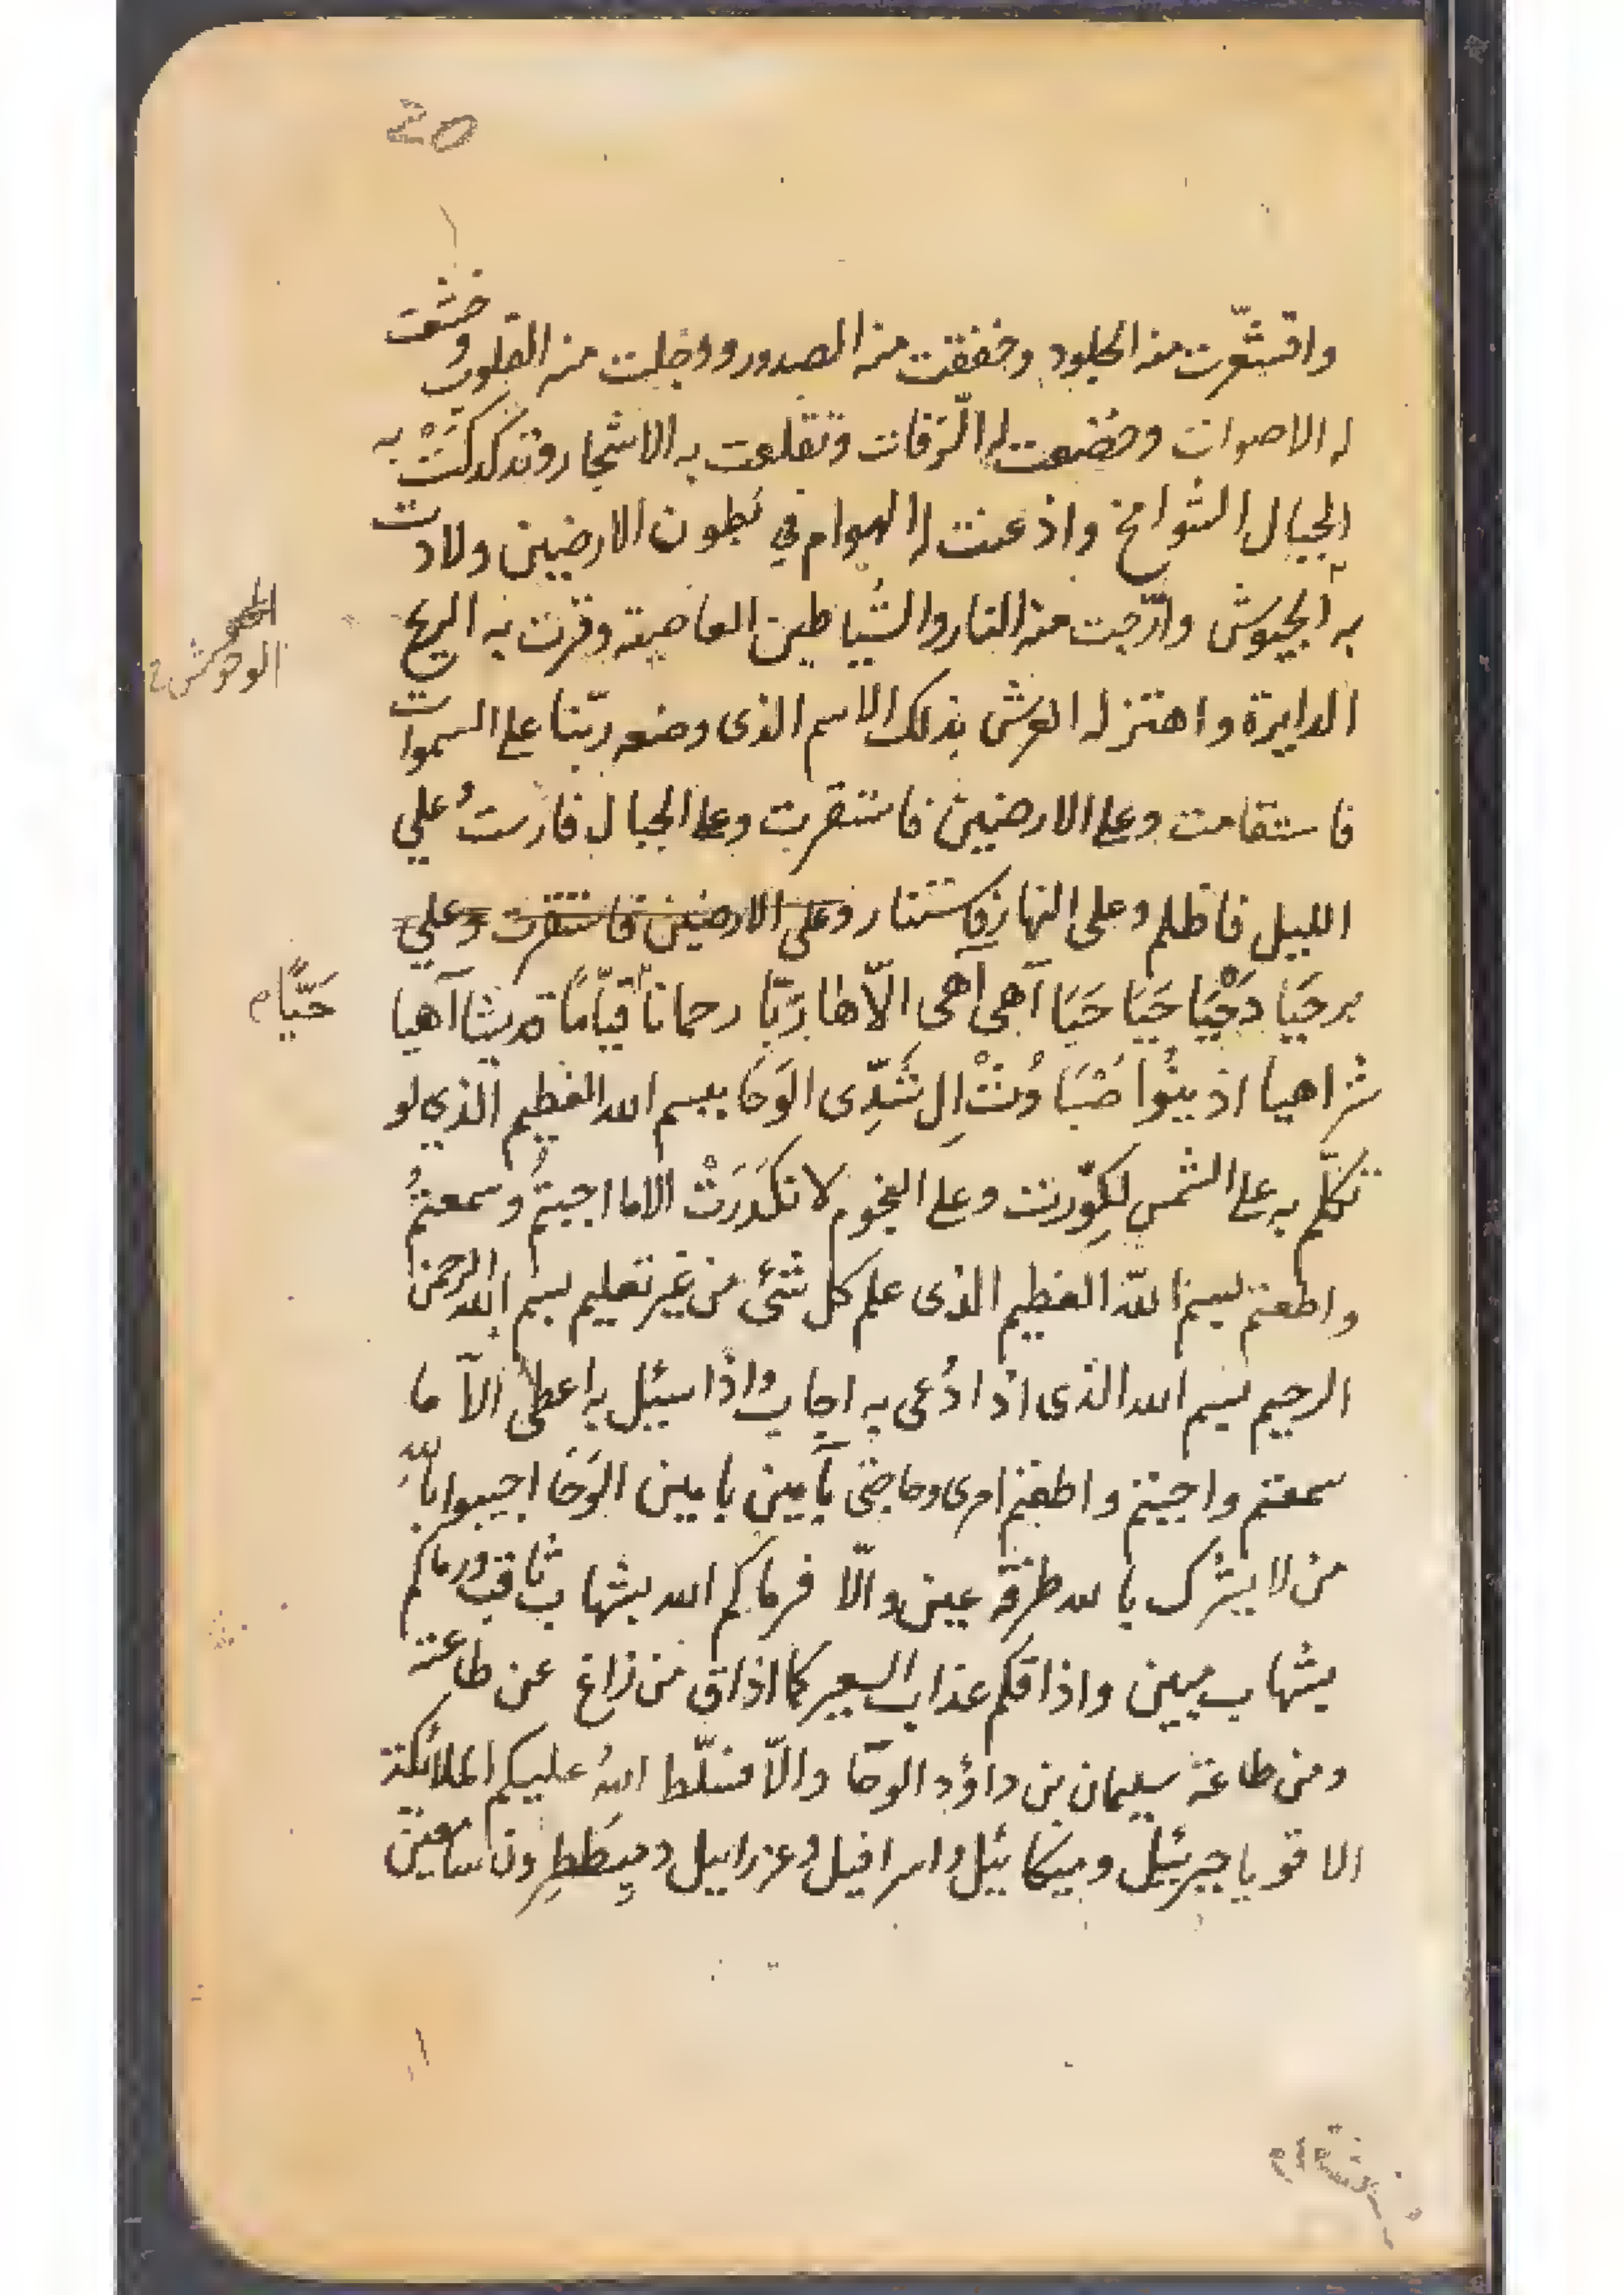 20
واقشعّرت منه الجلود وخفقت منه الصدور ووجلت منه القلوب وخشعت
له الاصوات وخضعت له الرقاب وتقلعت به الاشجار وتدكدكت به
الجبال الشوامخ واذعنت له الهوام في بطون الارضين ولاذت
به الجيوش وارتجت منه النار والشياطين العاصية وقرت به الريح
الوحوش خ
الدايرة واهتز له العرش بذلك الاسم الذى وضعه ربّنا على السموات
فاستقامت وعلى الارضين فاستقرت وعلى الجبال فارست وعلي
الليل فاظلم وعلى النهار فاستنار وعلى الارضين فاستقرت وعلي
برحَيَا دَحْيَيَا حَيَا حَيَا آهى آهى الّاها رَبّا رحمانا قيّاما قديشا آهيا
حَيًّا م
شراهيا اذ ال شَدِّى الوَحَا ببسم الله العظيم الّذي لو
تكلّم به على الشمس لكوّرت وعلى النجوم لانكَدَرَتْ الاما اجبتم وسمعتمُ
واطعتم بسم اللّه العظيم الذى علم كل شئ من غير تعليم بسم الله الرحمن
الرحيم بسم الله الذى اذا دُعى به اجاب واذا سئل به اعطى الآ ما
سمعتم واجبتم واطعتم امرى وحاجتى يآمين يامين الوَحَا اجيبوا باللّهِ
من لا يشرك بالله طرفة عين والّا فرماكم الله بشهاب ثاقب ورماكم
بشهاب مبين واذاقكم عذاب السعير كما اذاق من زاغ عن طاعته
ومن طاعة سليمان بن داؤد الوحآ والّا فسلّط اللهُ عليكم الملائكة
الاقويا جبرئيل وميكائيل واسرافيل وعزراييل وميطَطِرون سامعين